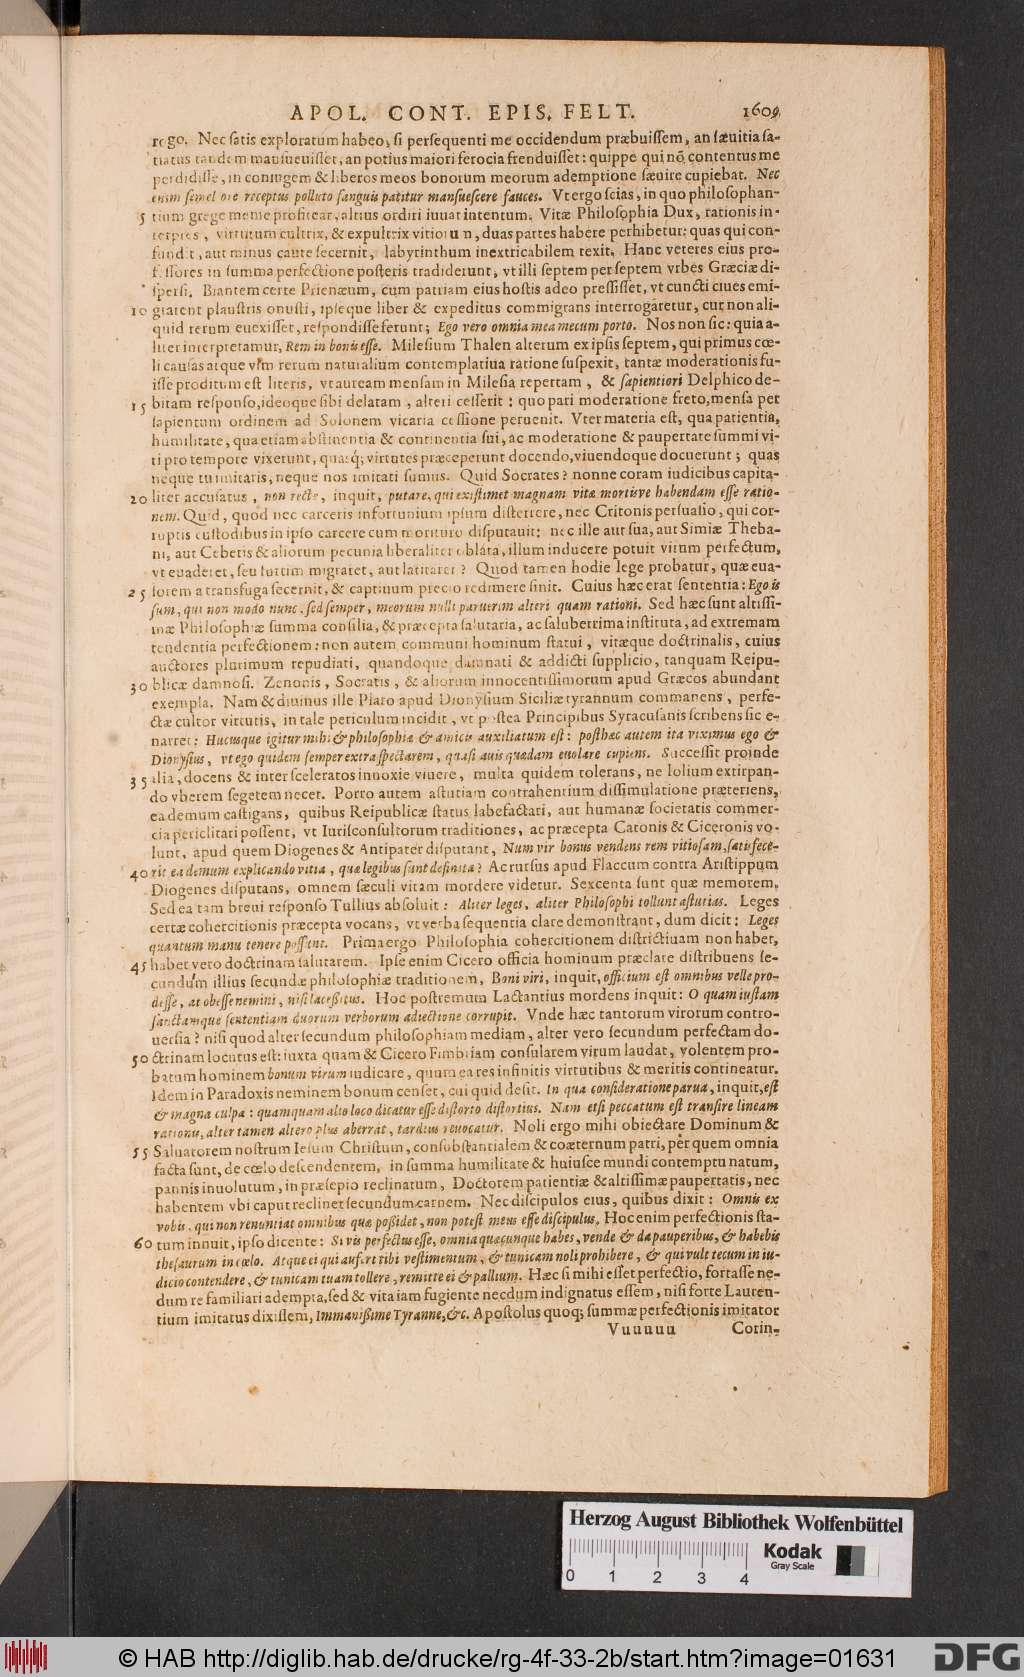 APOL. CONT. EPIS. FELT. 1609
rogo. Nec satis exploratum habeo, si persequenti me occidendum præbuissem, an sæuitia sa-
tiatus tandem mansueuisset, an potius maiori ferocia frenduisset: quippe qui nõ contentus me
perdidisse, in coniugem & liberos meos bonorum meorum ademptione sæuire cupiebat. Nec
enim semel ore receptus polluto sanguis patitur mansuescere fauces. Vt ergo scias, in quo philosophan-
5 tium grege meme profitear, altius ordiri iuuat intentum. Vitæ Philosophia Dux, rationis in-
terpres, virtutum cultrix, & expultrix vitiorum, duas partes habere perhibetur: quas qui con-
fundit, aut minus caute secernit, labyrinthum inextricabilem texit. Hanc veteres eius pro-
fessores in summa perfectione posteris tradiderunt, vt illi septem per septem vrbes Græciæ di-
spersi. Biantem certe Prienæum, cum patriam eius hostis adeo pressisset, vt cuncti ciues emi-
10 grarent plaustris onusti, ipseque liber & expeditus commigrans interrogaretur, cur non ali-
quid rerum euexisset, respondisse ferunt; Ego vero omnia mea mecum porto. Nos non sic: quia a-
liter interpretamur, Rem in bonis esse. Milesium Thalen alterum ex ipsis septem, qui primus cœ-
li causas atque vim rerum naturalium contemplatiua ratione suspexit, tantæ moderationis fu-
isse proditum est literis, vt auream mensam in Milesia repertam, & sapientiori Delphico de-
15 bitam responso, ideoque sibi delatam, alteri cesserit: quo pari moderatione freto, mensa per
sapientum ordinem ad Solonem vicaria cessione peruenit. Vter materia est, qua patientia,
humilitate, qua etiam abstinentia & continentia sui, ac moderatione & paupertate summi vi-
ri pro tempore vixerunt, quasq́; virtutes præceperunt docendo, viuendoque docuerunt; quas
neque tu imitaris, neque nos imitati sumus. Quid Socrates? nonne coram iudicibus capita-
20 liter accusatus, non recte, inquit, putare, qui existimet magnam vitæ mortisve habendam esse ratio-
nem. Quid, quod nec carceris infortunium ipsum disterrere, nec Critonis persuasio, qui cor-
ruptis custodibus in ipso carcere cum morituro disputauit: nec ille aut sua, aut Simiæ Theba-
ni, aut Cebetis & aliorum pecunia liberaliter oblata, illum inducere potuit virum perfectum,
vt euaderet, seu furtim migraret, aut latitaret? Quod tamen hodie lege probatur, quæ eua-
25 sorem a transfuga secernit, & captiuum precio redimere sinit. Cuius hæc erat sententia: Ego is
sum, qui non modo nunc, sed semper, meorum nulli paruerim alteri quam rationi. Sed hæc sunt altissi-
mæ Philosophiæ summa consilia, & præcepta salutaria, ac saluberrima instituta, ad extremam
tendentia perfectionem: non autem communi hominum statui, vitæque doctrinalis, cuius
auctores plurimum repudiati, quandoque damnati & addicti supplicio, tanquam Reipu-
30 blicæ damnosi. Zenonis, Socratis, & aliorum innocentissimorum apud Græcos abundant
exempla. Nam & diuinus ille Plato apud Dionysium Siciliæ tyrannum commanens, perfe-
ctæ cultor virtutis, in tale periculum incidit, vt postea Principibus Syracusanis scribens sic e-
narret: Hucusque igitur mihi & philosophiæ & amicis auxiliatum est: posthæc autem ita viximus ego &
Dionysius, vt ego quidem semper extra spectarem, quasi auis quædam euolare cupiens. Successit proinde
35 alia, docens & inter sceleratos innoxie viuere, multa quidem tolerans, ne lolium extirpan-
do vberem segetem necet. Porro autem astutiam contrahentium dissimulatione præteriens,
ea demum castigans, quibus Reipublicæ status labefactari, aut humanæ societatis commer-
cia periclitari possent, vt Iurisconsultorum traditiones, ac præcepta Catonis & Ciceronis vo-
lunt, apud quem Diogenes & Antipater disputant, Num vir bonus vendens rem vitiosam, satisfece-
40 rit ea demum explicando vitia, quæ legibus sunt definita? Ac rursus apud Flaccum contra Aristippum
Diogenes disputans, omnem sæculi vitam mordere videtur. Sexcenta sunt quæ memorem.
Sed ea tam breui responso Tullius absoluit: Aliter leges, aliter Philosophi tollunt astutias. Leges
certæ cohercitionis præcepta vocans, vt verba sequentia clare demonstrant, dum dicit: Leges
quantum manu tenere possunt. Prima ergo Philosophia cohercitionem districtiuam non habet,
45 habet vero doctrinam salutarem. Ipse enim Cicero officia hominum præclare distribuens se-
cundum illius secundæ philosophiæ traditionem, Boni viri, inquit, officium est omnibus velle pro-
desse, at obesse nemini, nisi lacessitus. Hoc postremum Lactantius mordens inquit: O quam iustam
sanctamque sententiam duorum verborum adiectione corrupit. Vnde hæc tantorum virorum contro-
uersia? nisi quod alter secundum philosophiam mediam, alter vero secundum perfectam do-
50 ctrinam locutus est: iuxta quam & Cicero Fimbriam consularem virum laudat, volentem pro-
batum hominem bonum virum iudicare, quum ea res infinitis virtutibus & meritis contineatur.
Idem in Paradoxis neminem bonum censet, cui quid desit. In qua consideratione parua, inquit, est
& magna culpa: quamquam alio loco dicatur esse distorto distortius. Nam etsi peccatum est transire lineam
rationis, alter tamen altero plus aberrat, tardius reuocatur. Noli ergo mihi obiectare Dominum &
55 Saluatorem nostrum Iesum Christum, consubstantialem & coæternum patri, per quem omnia
facta sunt, de cœlo descendentem, in summa humilitate & huiusce mundi contemptu natum,
pannis inuolutum, in præsepio reclinatum, Doctorem patientiæ & altissimæ paupertatis, nec
habentem vbi caput reclinet secundum carnem. Nec discipulos eius, quibus dixit: Omnis ex
vobis, qui non renuntiat omnibus quæ possidet, non potest meus esse discipulus. Hoc enim perfectionis sta-
60 tum innuit, ipso dicente: Si vis perfectus esse, omnia quæcunque habes, vende & da pauperibus, & habebis
thesaurum in cœlo. Atque ei qui aufert tibi vestimentum, & tunicam noli prohibere, & qui vult tecum in iu-
dicio contendere, & tunicam tuam tollere, remitte ei & pallium. Hæc si mihi esset perfectio, fortasse ne-
dum re familiari adempta, sed & vita iam fugiente necdum indignatus essem, nisi forte Lauren-
tium imitatus dixissem, Immanissime Tyranne, &c. Apostolus quoq; summæ perfectionis imitator
Vuuuuu Corin-
Herzog August Bibliothek Wolfenbüttel
Kodak
Gray Scale
0 1 2 3 4
© HAB http://diglib.hab.de/drucke/rg-4f-33-2b/start.htm?image=01631
DFG